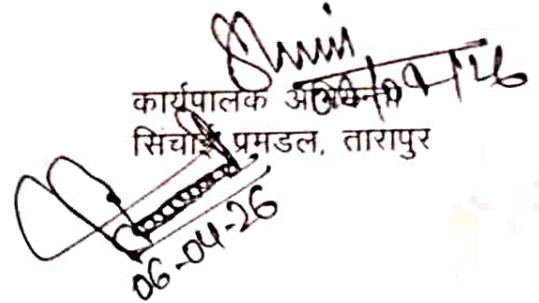 कार्यपालक अभियन्ता
सिंचाई प्रमंडल, तारापुर
06-04-26